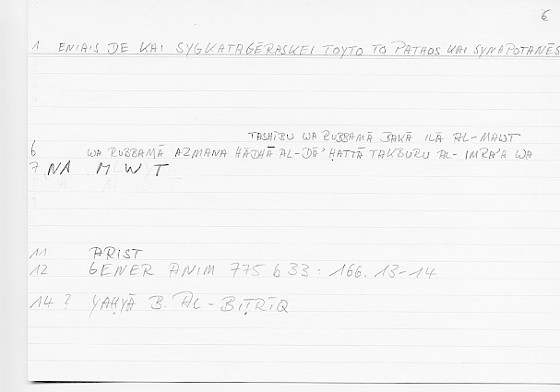 6
1 ENIAIS DE KAI SYGKATAGĒRASKEI TOYTO TO PATHOS KAI SYNAPOTHNĒS
TASHĪBU WA RUBBAMĀ BAKĀ ILĀ AL-MAWT
6 WA RUBBAMĀ AZMANA HĀDHĀ AL-DĀ' ḤATTĀ TAKBURU AL-IMRA'A WA
7 NA M W T
11 ARIST
12 GENER ANIM 775 b 33 · 166.13-14
14 ? YAḤYĀ B. AL-BIṬRĪQ